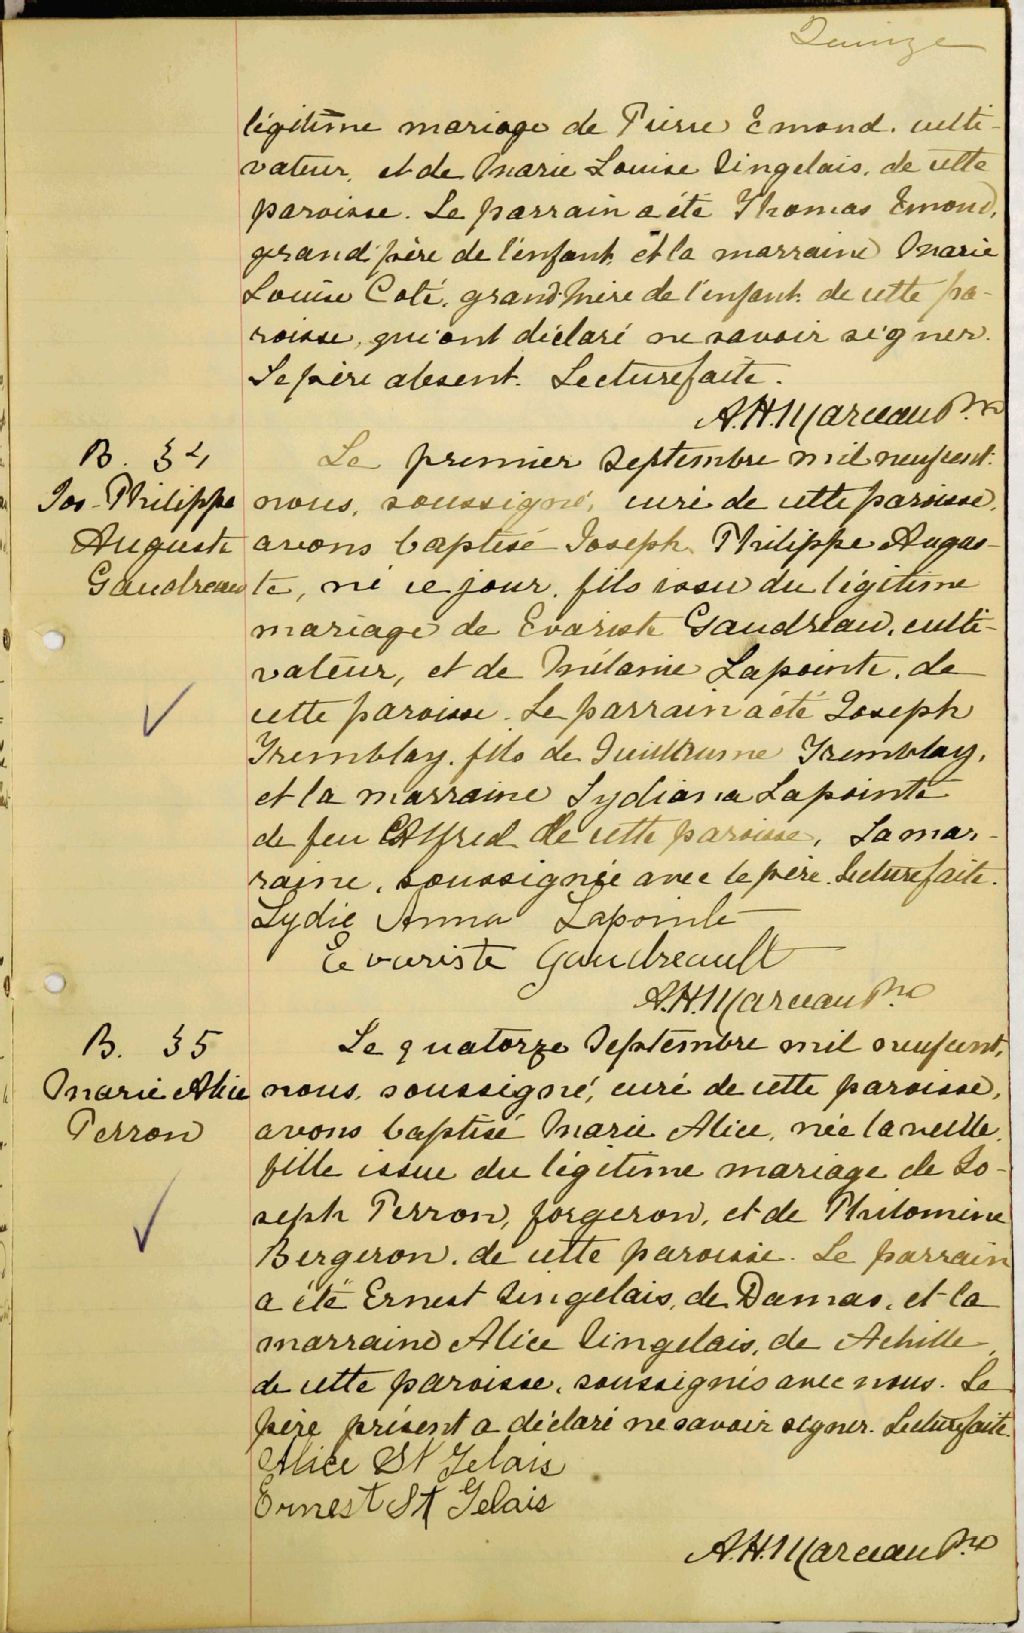 Quinze
légitime mariage de Pierre Emond, culti-
vateur, et de Marie Louise Singelais, de cette
paroisse. Le parrain a été Thomas Emond,
grand'père de l'enfant et la marraine Marie
Louise Coté, grand-mère de l'enfant de cette pa-
roisse, qui ont déclaré ne savoir signer.
Le père absent. Lecture faite.
A.H. Marceau Ptre
B. 34
Jos-Philippe
Auguste
Gaudreau
Le premier Septembre mil neuf cent,
nous, soussigné, curé de cette paroisse,
avons baptisé Joseph Philippe Augus-
te, né ce jour, fils issu du légitime
mariage de Evariste Gaudreau, culti-
vateur, et de Mélanie Lapointe, de
cette paroisse. Le parrain a été Joseph
Tremblay, fils de Guillaume Tremblay,
et la marraine Lydiana Lapointe
de feu Alfred de cette paroisse, La mar-
raine, soussignée avec le père. Lecture faite.
Lydie Anna Lapointe
Evariste Gaudreault
A.H. Marceau Ptre
B. 35
Marie Alice
Perron
Le quatorze Septembre mil neuf cent,
nous, soussigné, curé de cette paroisse,
avons baptisé Marie Alice, née la veille,
fille issue du légitime mariage de Jo-
seph Perron, forgeron, et de Philomène
Bergeron, de cette paroisse. Le parrain
a été Ernest Singelais, de Damas, et la
marraine Alice Singelais, de Achille,
de cette paroisse, soussignés avec nous. Le
père présent a déclaré ne savoir signer. Lecture faite.
Alice St Gelais
Ernest St Gelais
A.H. Marceau Ptre